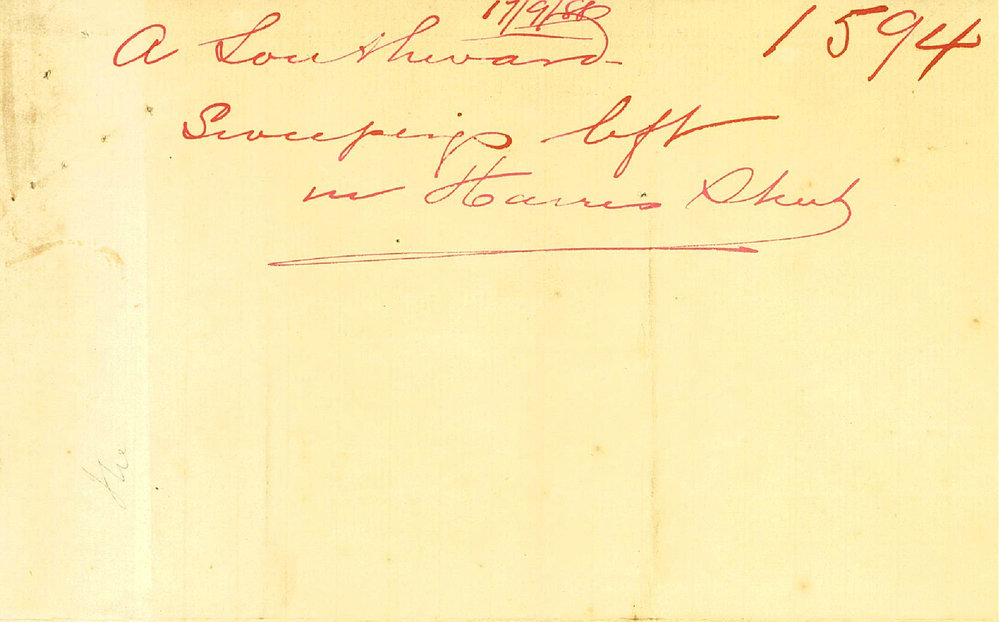 17/9/88
A Southward 1594
Sweepings left
in Harris Street
the